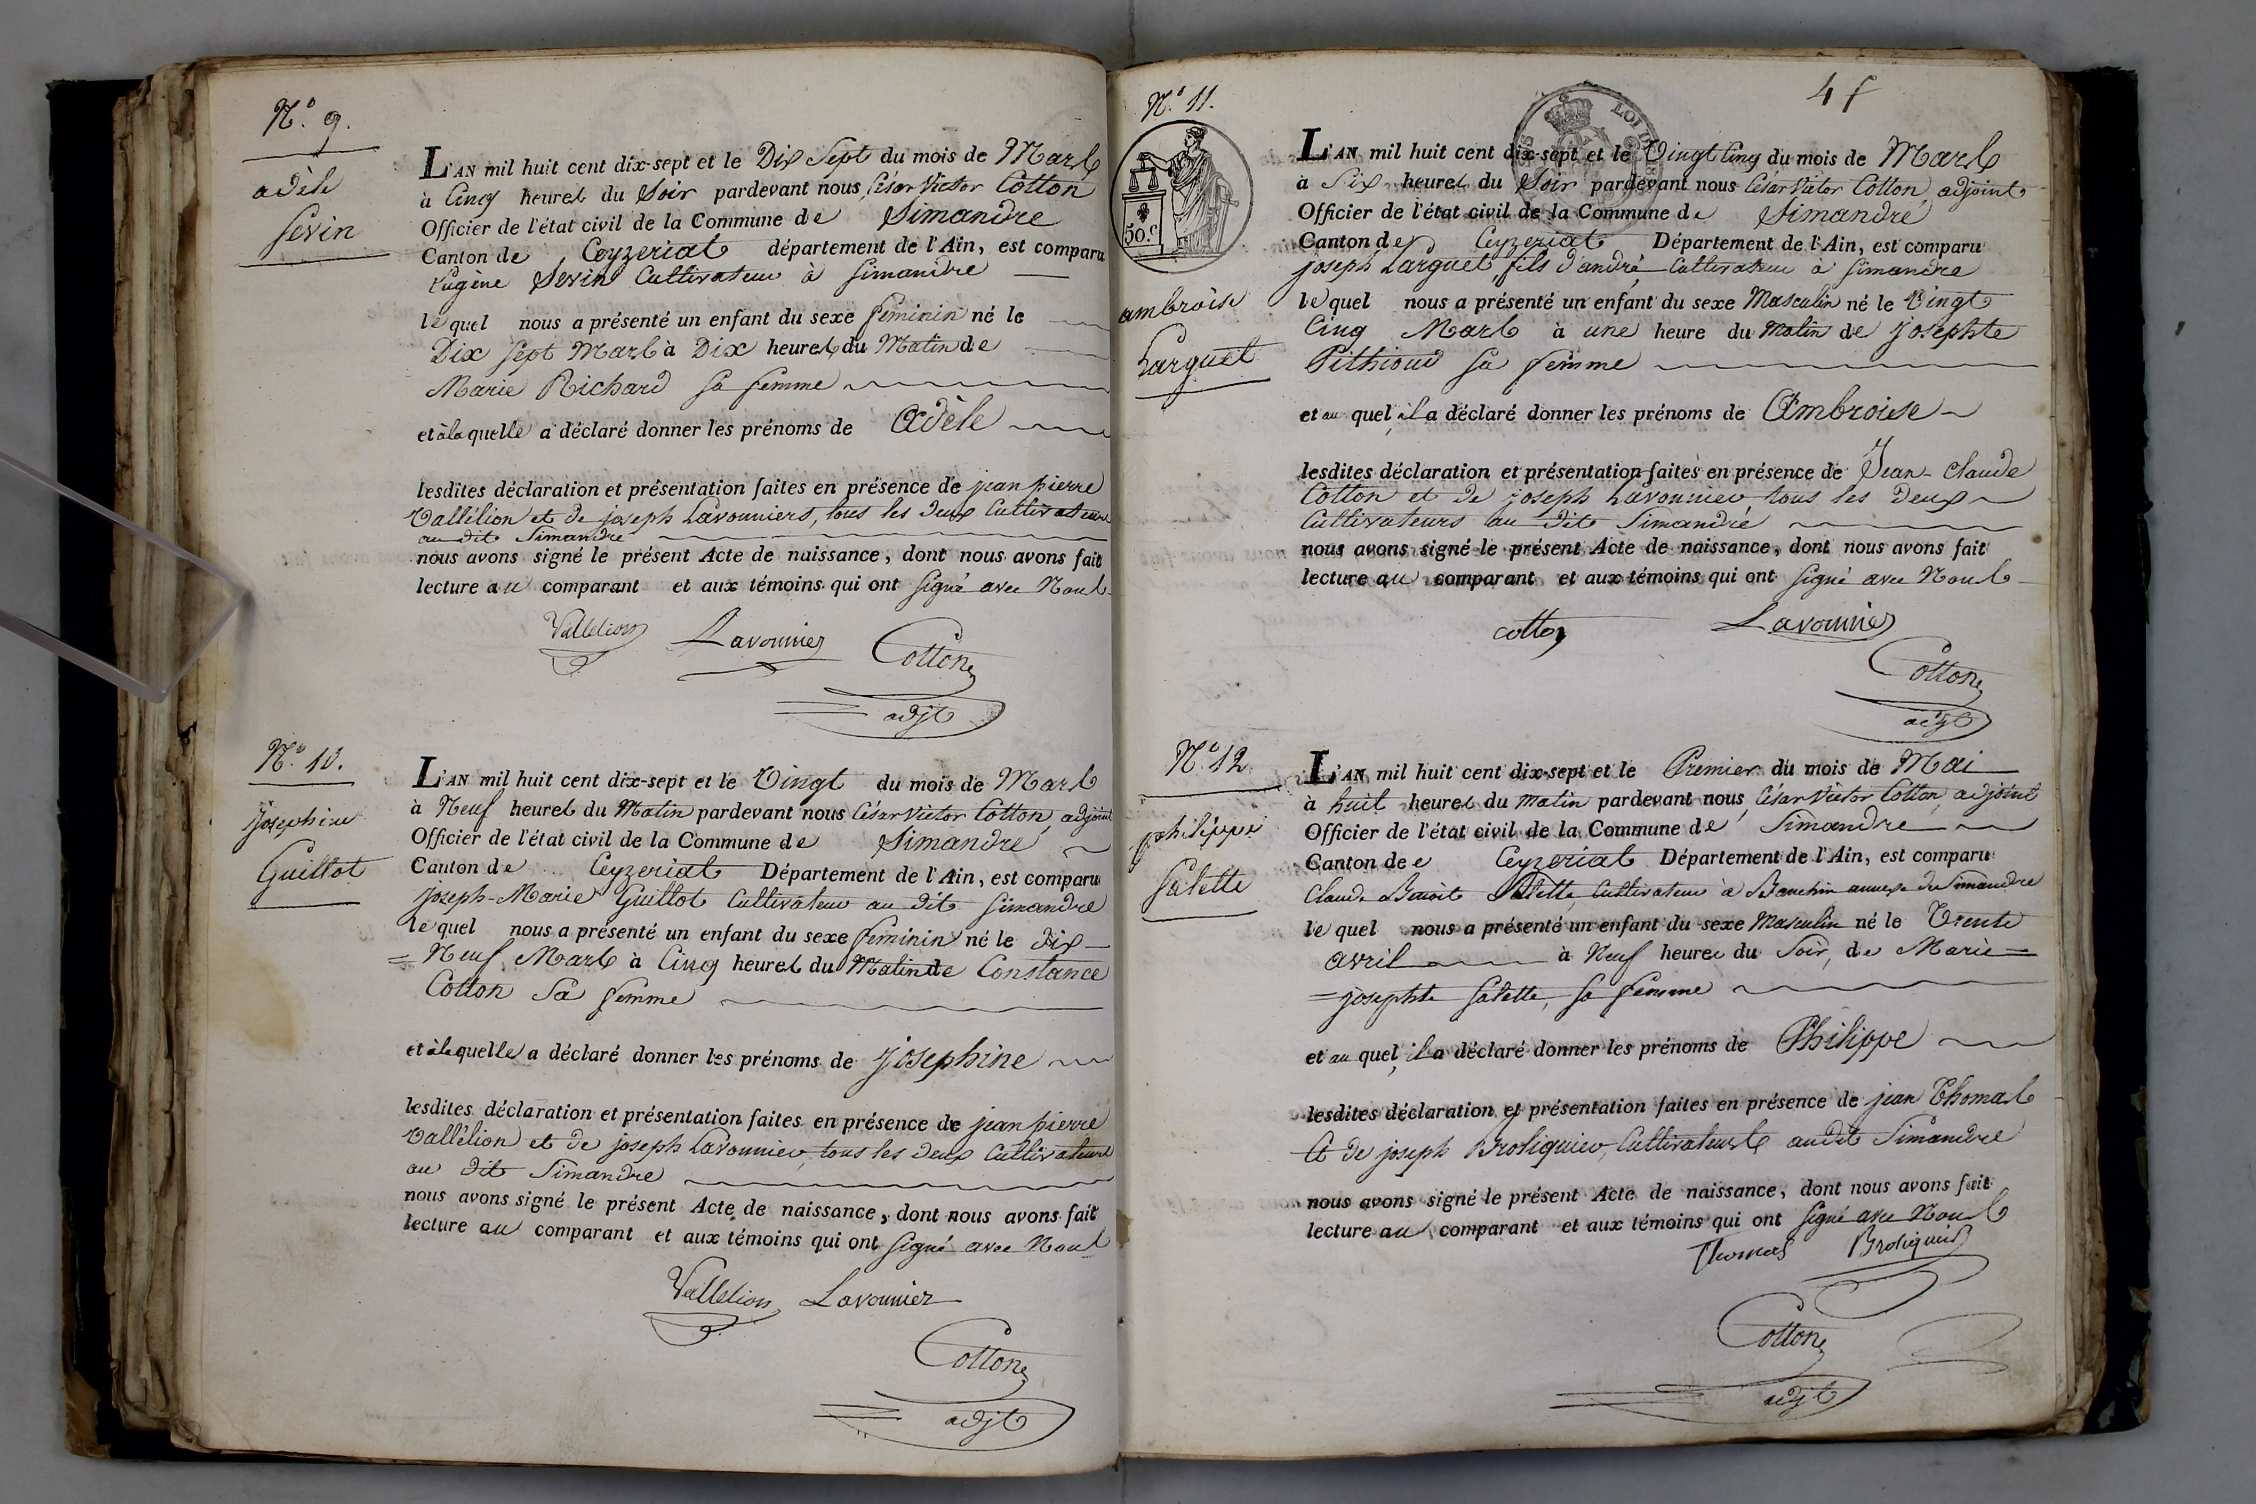 N.° 9.
adèle
Sevin
L'AN mil huit cent dix-sept et le Dix Sept du mois de Mars
à Cinq heures du Soir pardevant nous César Victor Cotton
Officier de l'état civil de la Commune de Simandre
Canton de Ceyzeriat département de l'Ain, est comparu
Eugène Sevin Cultivateur à Simandre
lequel nous a présenté un enfant du sexe féminin né le
Dix Sept Mars à Dix heures du Matin de
Marie Richard sa femme
et à la quelle a déclaré donner les prénoms de Adèle
lesdites déclaration et présentation faites en présence de jean pierre
Vallélion et de joseph Lavouniers, tous les deux Cultivateurs
au dit Simandre
nous avons signé le présent Acte de naissance, dont nous avons fait
lecture au comparant et aux témoins qui ont signé avec Nous
Vallelion Lavounier Cotton
adjt
N.° 10.
Josephine
Guillot
L'AN mil huit cent dix-sept et le Vingt du mois de Mars
à Neuf heures du Matin pardevant nous César Victor Cotton, adjoint
Officier de l'état civil de la Commune de Simandre
Canton de Ceyzeriat Département de l'Ain, est comparu
joseph-Marie Guillot Cultivateur au dit Simandre
lequel nous a présenté un enfant du sexe féminin né le dix
= Neuf Mars à Cinq heures du Matin de Constance
Cotton Sa femme
et à la quelle a déclaré donner les prénoms de Josephine
lesdites déclaration et présentation faites en présence de jean pierre
Vallélion et de joseph Lavounier, tous les deux Cultivateurs
au dit Simandre
nous avons signé le présent Acte de naissance, dont nous avons fait
lecture au comparant et aux témoins qui ont signé avec Nous
Vallelion Lavounier
Cotton
adjt
N.° 11.
50.c
ambroise
Larguet
L'AN mil huit cent dix-sept et le Vingt Cinq du mois de Mars
à Six heures du Soir pardevant nous César Victor Cotton, adjoint
Officier de l'état civil de la Commune de Simandre
Canton de Ceyzeriat Département de l'Ain, est comparu
joseph Larguet fils d'andré Cultivateur à Simandre
lequel nous a présenté un enfant du sexe Masculin né le Vingt
Cinq Mars à une heure du Matin de Josephte
Pithioud sa femme
et au quel il a déclaré donner les prénoms de Ambroise
lesdites déclaration et présentation faites en présence de Jean-Claude
Cotton et de joseph Lavounier tous les deux
Cultivateurs au dit Simandre
nous avons signé le présent Acte de naissance, dont nous avons fait
lecture au comparant et aux témoins qui ont signé avec Nous
cotton Lavounier
Cotton
adjt
N.° 12
philippe
Salette
L'AN mil huit cent dix-sept et le Premier du mois de Mai
à huit heures du matin pardevant nous César Victor Cotton, adjoint
Officier de l'état civil de la Commune de Simandre
Canton de Ceyzeriat Département de l'Ain, est comparu
Claude Benoit Salette Cultivateur à Banchin annexe de Simandre
lequel nous a présenté un enfant du sexe Masculin né le Trente
avril à Neuf heures du Soir, de Marie =
= josephte Salette, sa femme
et au quel il a déclaré donner les prénoms de Philippe
lesdites déclaration et présentation faites en présence de jean Thomas
et de joseph Broliquier, Cultivateurs audit Simandre
nous avons signé le présent Acte de naissance, dont nous avons fait
lecture au comparant et aux témoins qui ont signé avec Nous
Thomas Broliquier
Cotton
adjt